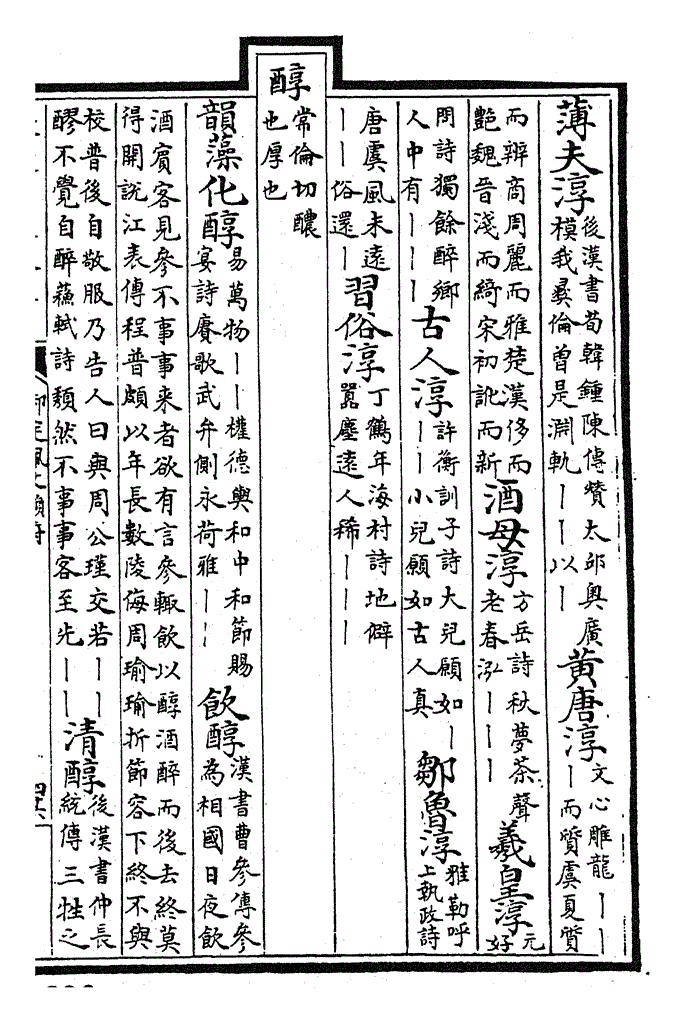 薄夫淳 後漢書荀韓鍾陳傳贊太邱奥廣模我彝倫曽是淵軌丨丨以丨 黄唐淳 文心雕龍丨丨丨而質虞夏質
而辨商周麗而雅楚漢侈而艷魏晉淺而綺宋初訛而新 酒母淳 方岳詩秋夢茶聲老春泓丨丨丨 羲皇淳 元好
問詩獨餘醉鄉人中有丨丨丨 古人淳 許衡訓子詩大兒願如丨丨丨小兒願如古人真 鄒魯淳 雅勒呼上執政詩
唐虞風未遠丨丨俗還丨 習俗淳 丁鶴年海村詩地僻囂塵遠人稀丨丨丨
醇 常倫切醲也厚也
韻藻化醇 易萬物丨丨權德輿和中和節賜宴詩賡歌武弁側永荷雅丨丨 飲醇 漢書曹參傳參為相國日夜飲
酒賓客見參不事事来者欲有言參輒飲以醇酒醉而後去終莫得開説江表傳程普頗以年長數陵侮周瑜瑜折節容下終不與
校普後自敬服乃告人曰與周公瑾交若丨丨醪不覺自醉蘇軾詩頽然不事事客至先丨丨 清醇 後漢書仲長統傳三牲之